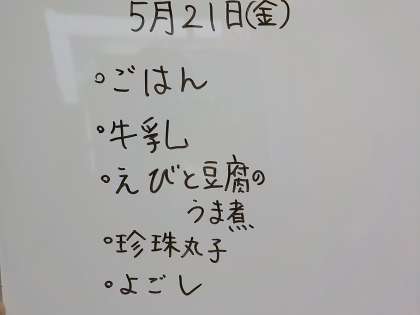 5月21日(金)
・ごはん
・牛乳
・えびと豆腐の
うま煮
・珍珠丸子
・よごし